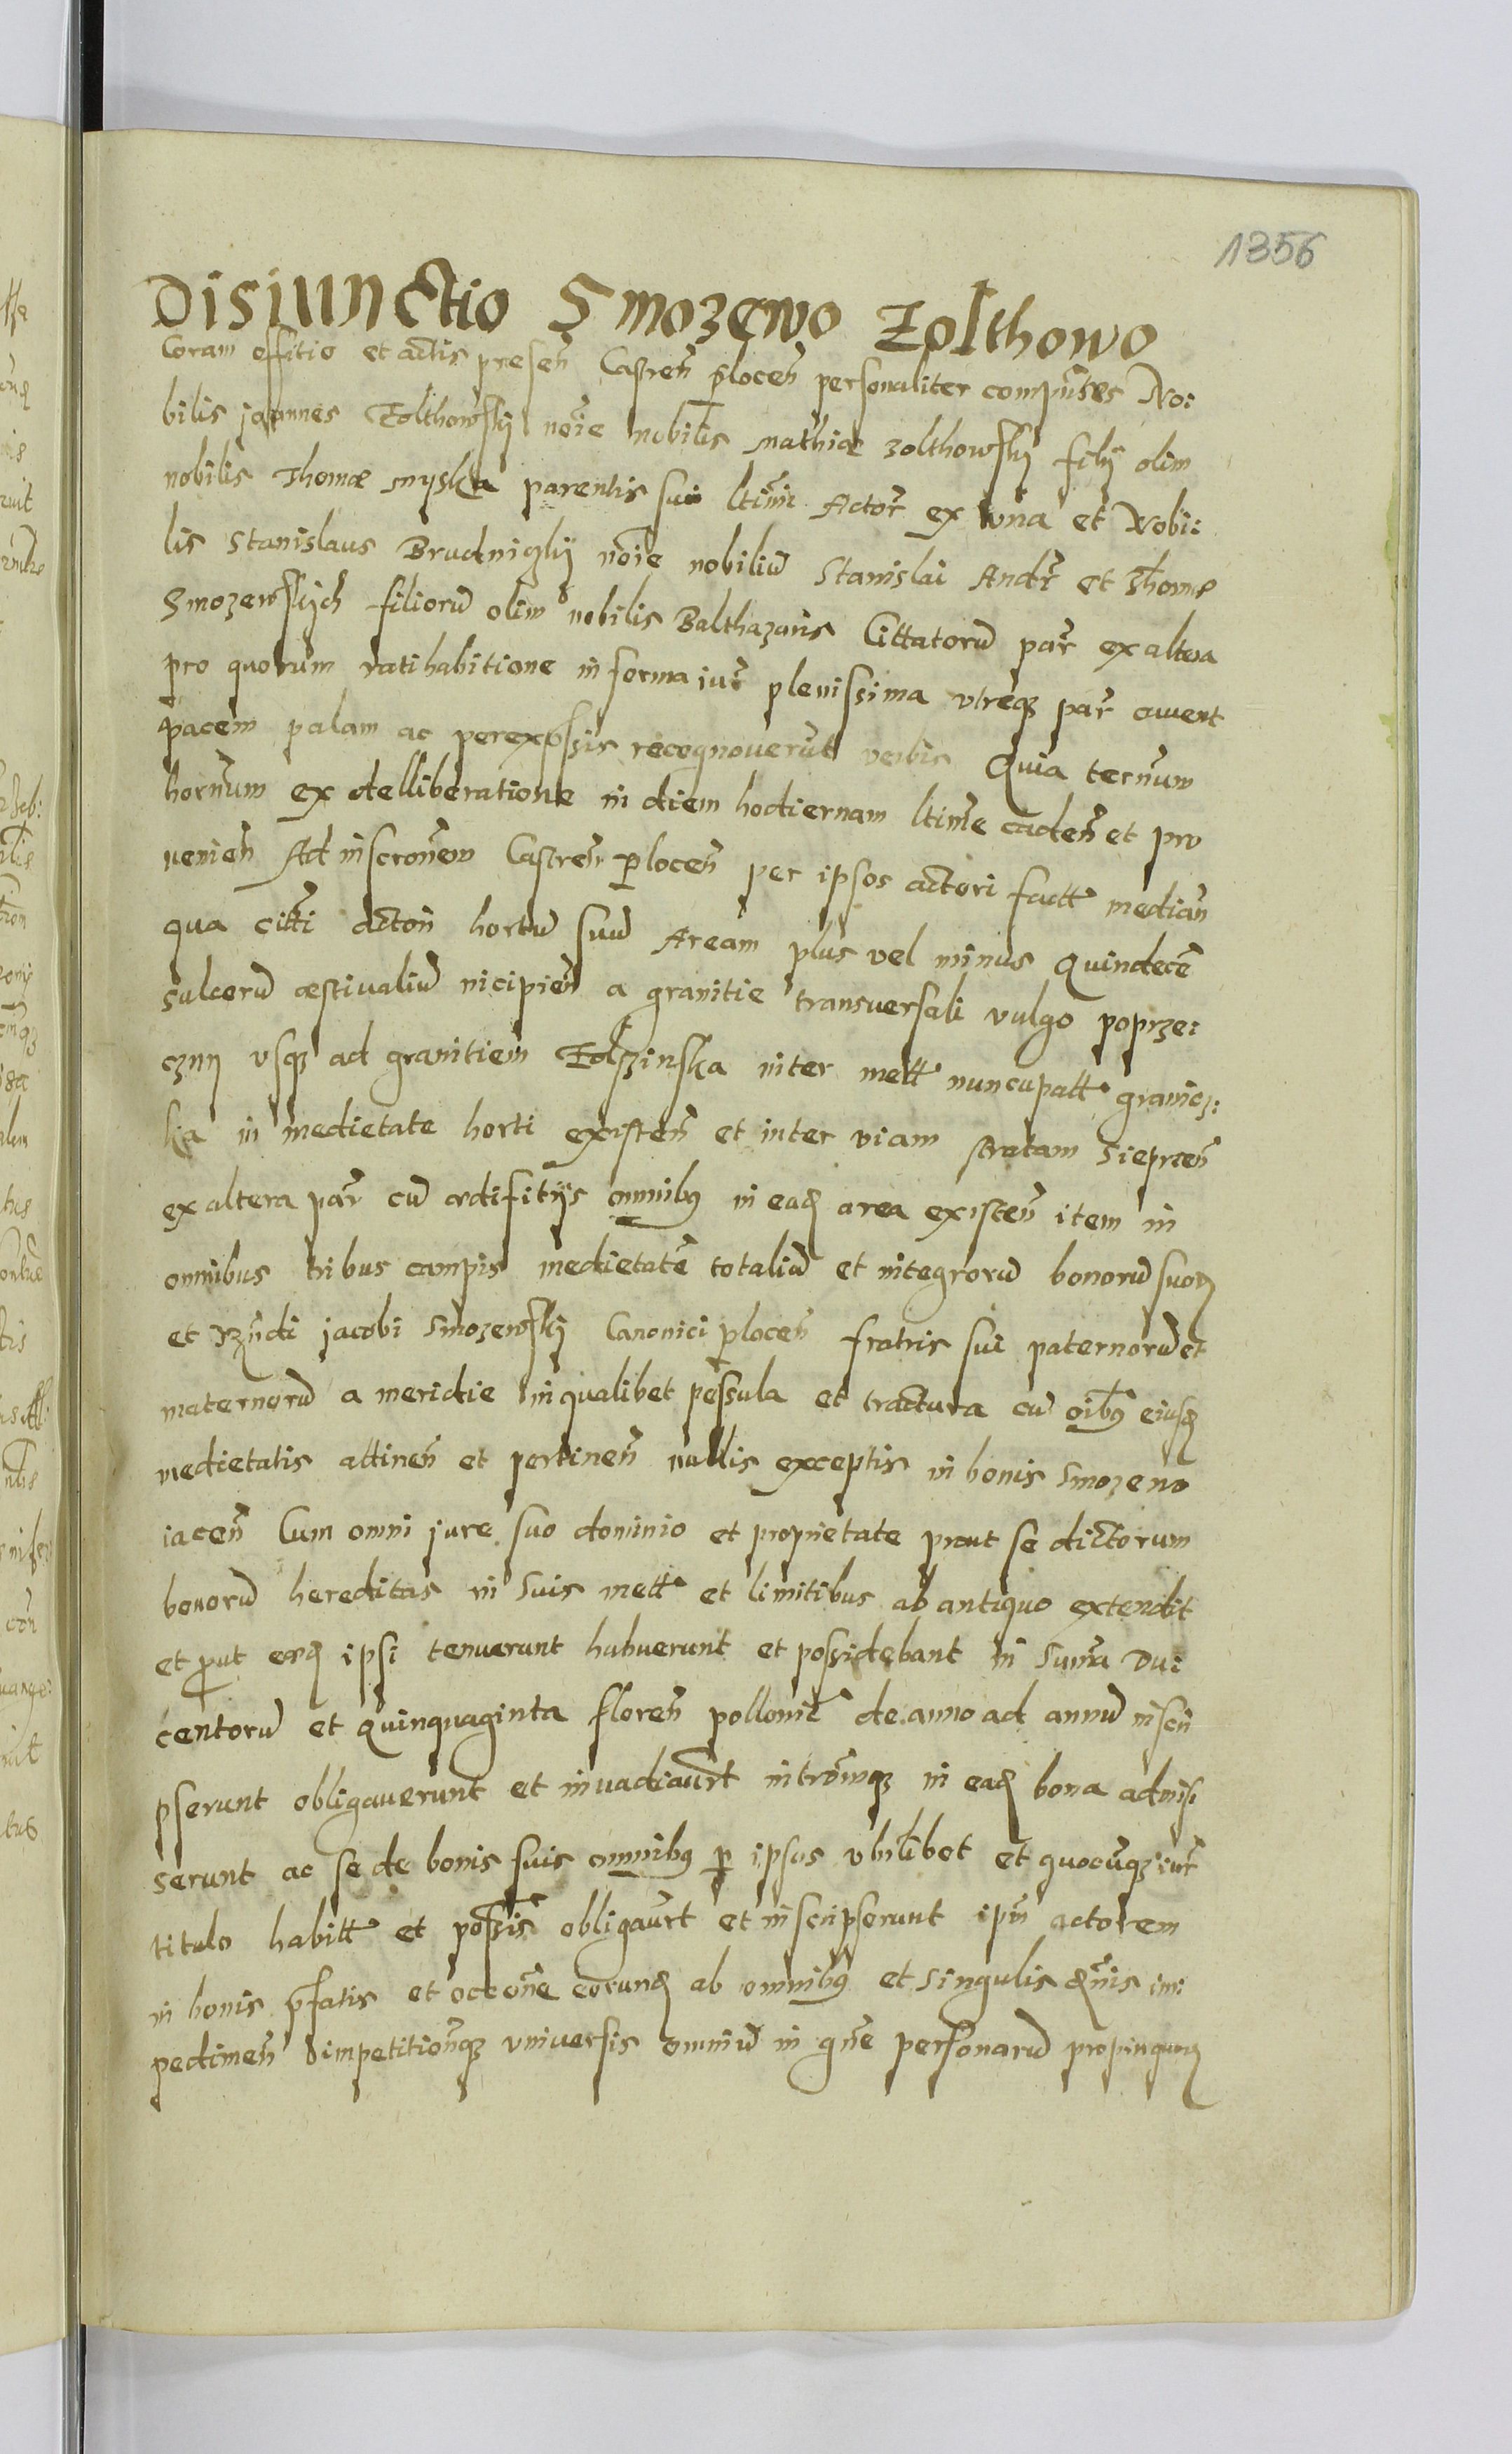 1356
Disiunctio Smozewo Zolthowo
Coram offitio et actis presen̄ Castren̄ plocen̄ personaliter compn̄tes No:
bilis joannes Zolthowskÿ noīe nobilis Mathiae zolthowskÿ filÿ olim
nobilis Thomae Myska parentis sui ltīmi Actor̄ ex vna et Nobi:
lis Stanislaus Brudniczkÿ noīe nobiliū Stanislai Andr̄ et Thomae
Smozewskÿch filiorū olim nobilis Balthazaris Cittatorū par̄ ex altera
pro quorum ratihabitione in forma iur̄ plenissima vtreqꝫ par̄ cavent
pacem palam ac perexpssis recognouerūt verbis Quia ternum
hornum ex delliberatione in diem hodiernam ltīme caden̄ et pro
venien̄ Ad inscronēm Castren̄ plocen̄ per ipsos actori factt median̄
qua citti actori hortū suū Aream plus vel minus Quindecē
sulcorū aestivaliū incipien̄ a granitie transversali vulgo poprze:
cznÿ vsqꝫ ad granitiem Zolszinska inter mett nuncupatt granicz:
ka in medietate horti existen̄ et inter viam stratam Siepcen̄
ex altera par̄ cū aedifitÿs omnibꝰ in eadꝫ area existen̄ item in
omnibus tribus campis medietatē totaliū et integrorū bonorū suorꝫ
et Rn̄di jacobi Smozewskÿ Canonici plocen̄ fratris sui paternorū et
maternorū a meridie in qualibet pessula et tractura cū oībꝰ eiusdꝫ
medietatis attinen̄ et pertinen̄ nullis exceptis in bonis Smozewo
iacen̄ Cum omni jure suo dominio et proprietate prout se dictorum
bonorū hereditas in suis mett et limitibus ab antiquo extendit
et put eadꝫ ipsi tenuerunt habuerunt et possidebant in Summa Du:
centorū et quinquaginta floren̄ pollonic̄ de anno ad annū inscri
pserunt obligaverunt et invadiavrt̄ intromqꝫ in eadꝫ bona admi
serunt ac se de bonis suis omnibꝰ p ipsos vbilibet et quocūqꝫ iur̄
titulo habitt et possis̄ obligavrt̄ et inscripserunt ipm̄ actorem
in bonis pfatis et occōne eorundꝫ ab omnibꝰ et singulis qūis im:
pedimen̄ impetitionēqꝫ vniversis omniū in gne personarū propinquarꝫ